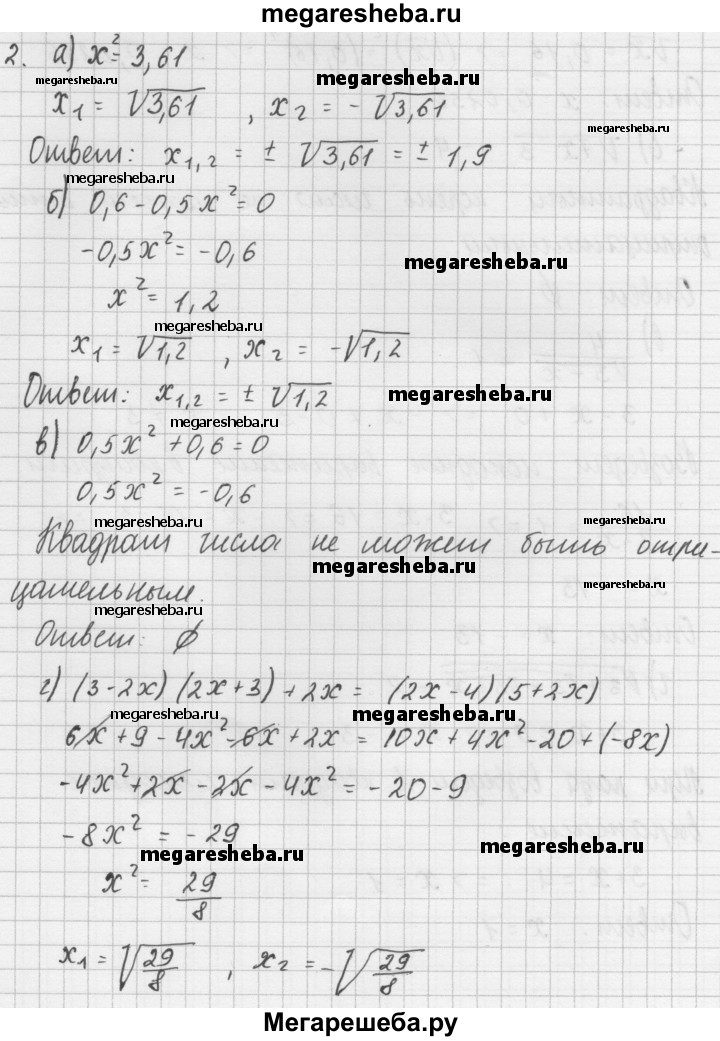 megaresheba.ru
2. а) x² = 3,61
megaresheba.ru megaresheba.ru
x₁ = √3,61 , x₂ = - √3,61
megaresheba.ru
Ответ: x₁,₂ = ± √3,61 = ± 1,9
megaresheba.ru
б) 0,6 - 0,5x² = 0
-0,5x² = -0,6
megaresheba.ru
x² = 1,2
megaresheba.ru
x₁ = √1,2 ; x₂ = -√1,2
megaresheba.ru
Ответ: x₁,₂ = ± √1,2
megaresheba.ru
в) 0,5x² + 0,6 = 0
0,5x² = -0,6
megaresheba.ru megaresheba.ru
Квадрат числа не может быть отри-
megaresheba.ru
цательным.
megaresheba.ru
megaresheba.ru
Ответ: ∅
г) (3-2x) (2x+3) + 2x = (2x-4)(5+2x)
megaresheba.ru megaresheba.ru
6x + 9 - 4x² - 6x + 2x = 10x + 4x² - 20 + (-8x)
-4x² + 2x - 2x - 4x² = - 20 - 9
-8x² = - 29
megaresheba.ru megaresheba.ru
x² = 29/8
x₁ = √29/8 , x₂ = -√29/8
Мегарешеба.ру